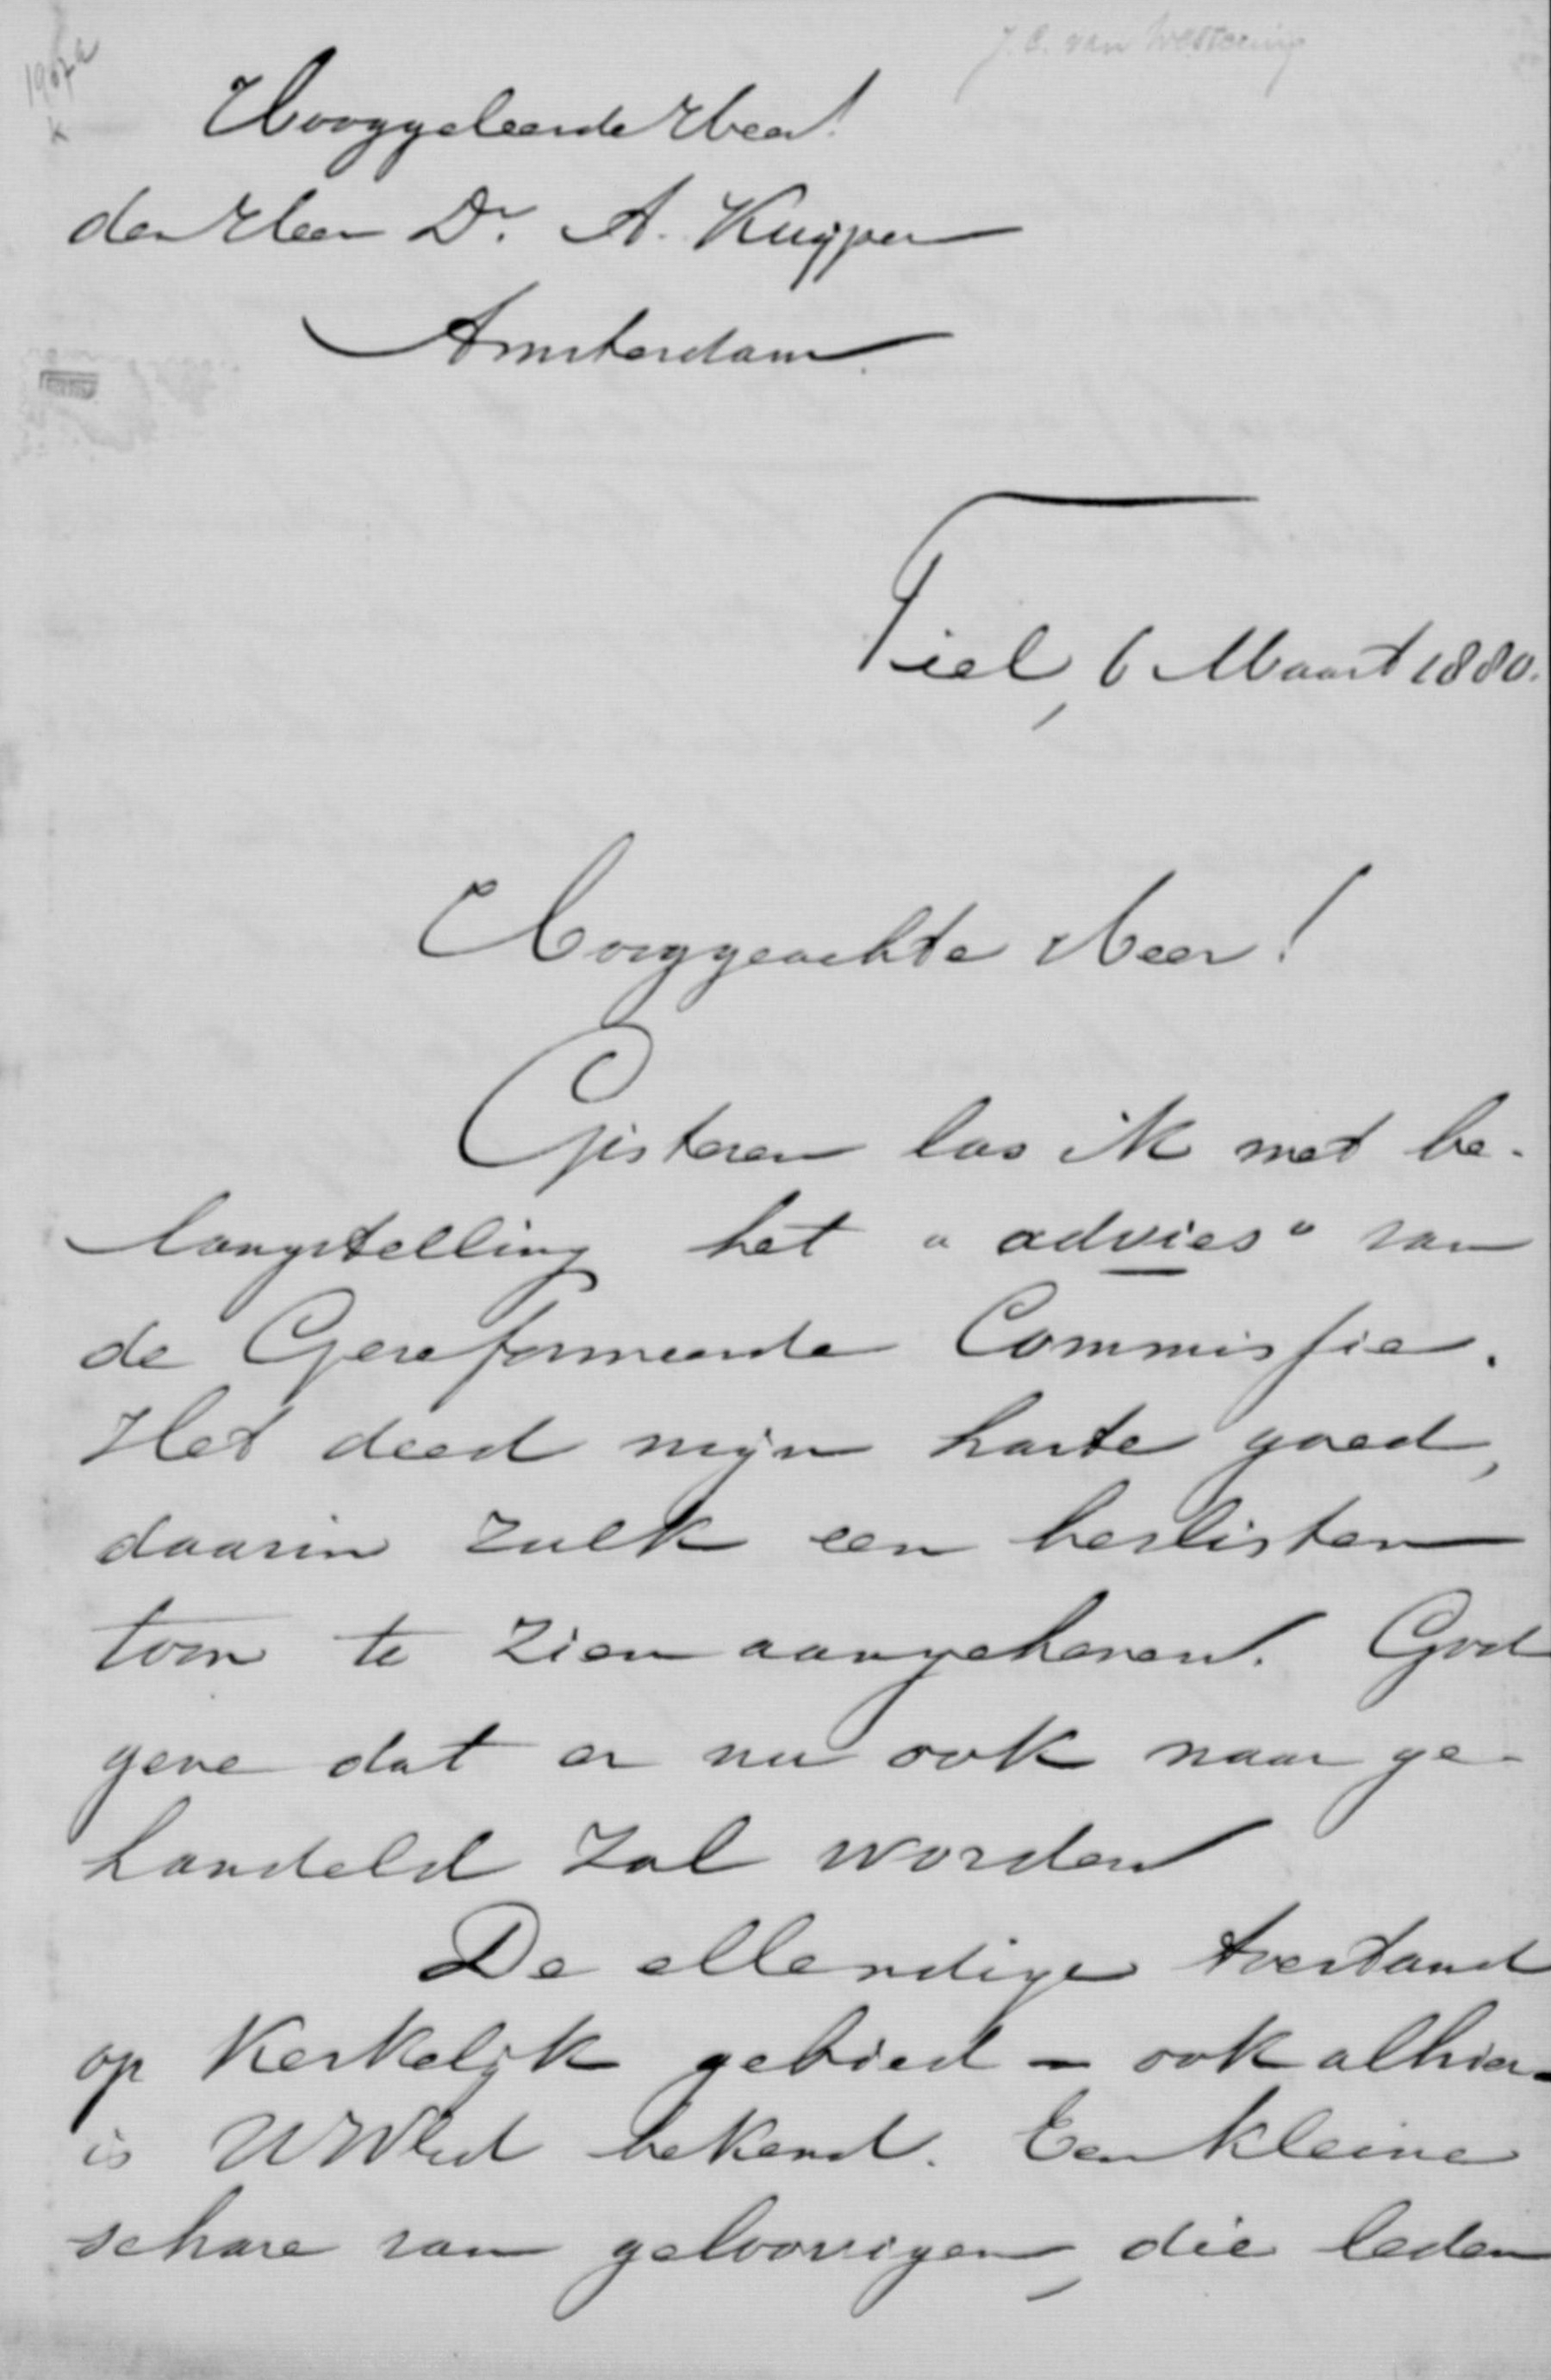 J.C. van Westering
1967a
K
Hooggeleerde Heer!
den Heer Dr. A. Kuyper
Amsterdam.
Tiel, 6 Maart 1880.
Hooggeachte Heer!
Gisteren las ik met be-
langstelling het "advies" van
de Gereformeerde Commissie.
Het deed mijn harte goed,
daarin zulk een beslisten
toon te zien aangeheven. God
geve dat er nu ook naar ge-
handeld zal worden
De ellendige toestand
op Kerkelijk gebied - ook alhier -
is UWEd bekend. Een kleine
schare van geloovigen, die leden